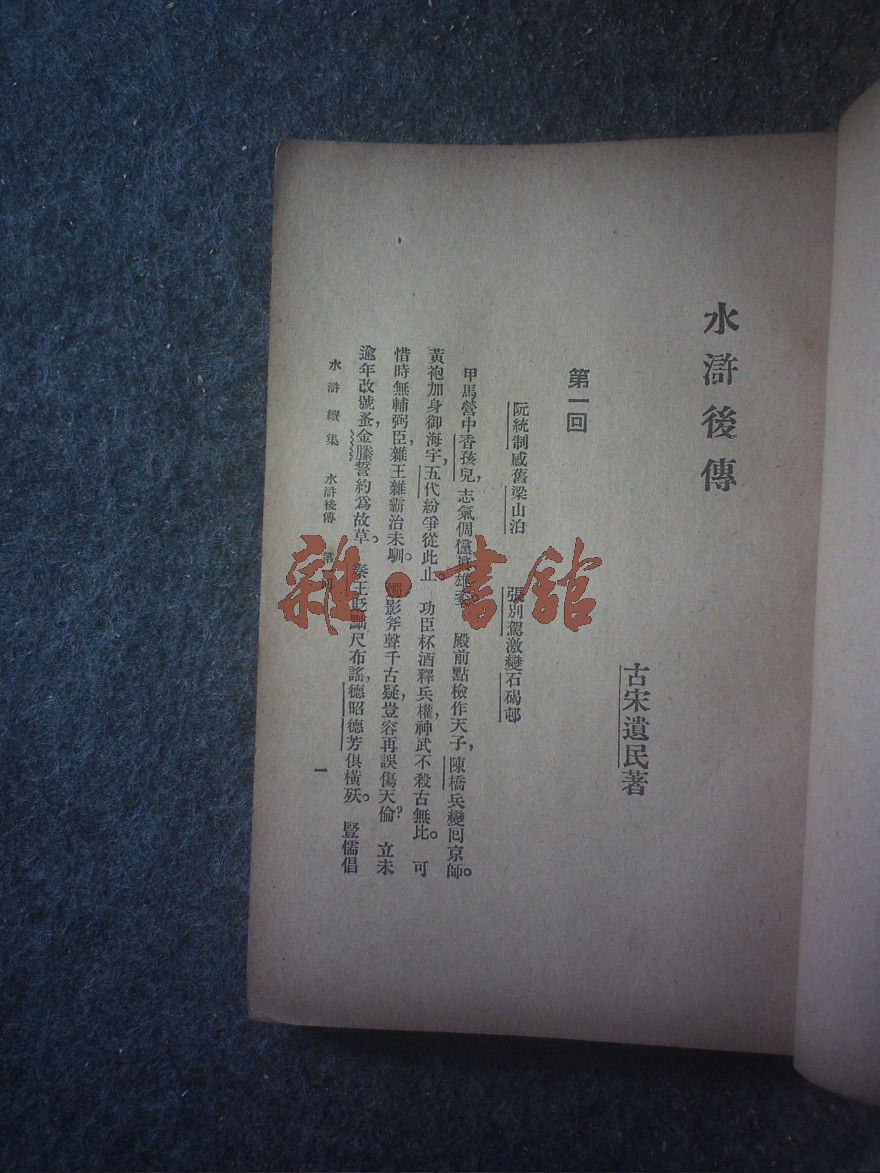 水滸後傳
古宋遺民著
第一回
阮統制感舊梁山泊 張別駕激變石碣邨
甲馬營中香孩兒，志氣倜儻真雄姿。 殿前點檢作天子，陳橋兵變回京師。
黃袍加身御海宇，五代紛爭從此止。 功臣杯酒釋兵權，神武不殺古無比。 可
惜時無輔弼臣，雜王雜霸治未馴。 燭影斧聲千古疑，豈容再誤傷天倫？ 立未
逾年改號蚤，金縢誓約為故草。 秦王貶黜尺布謠，德昭德芳俱橫殀。 豎儒倡
水滸續集 水滸後傳 第一回
一
雜·書館